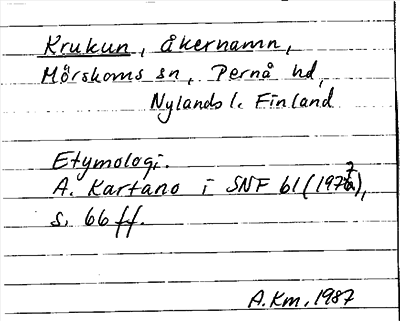 Krukun, åkernamn,
Mörskoms sn, Pernå hd,
Nylands l. Finland
Etymologi.
A. Kartano i SNF 61 (1972),
s. 66 ff.
A.Km, 1987